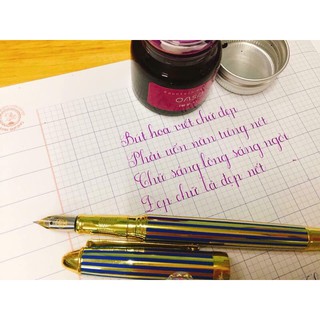 Bút hoa viết chữ đẹp
Phải uốn nắn từng nét
Chữ sáng lòng sáng ngời
Đẹp chữ là đẹp nết